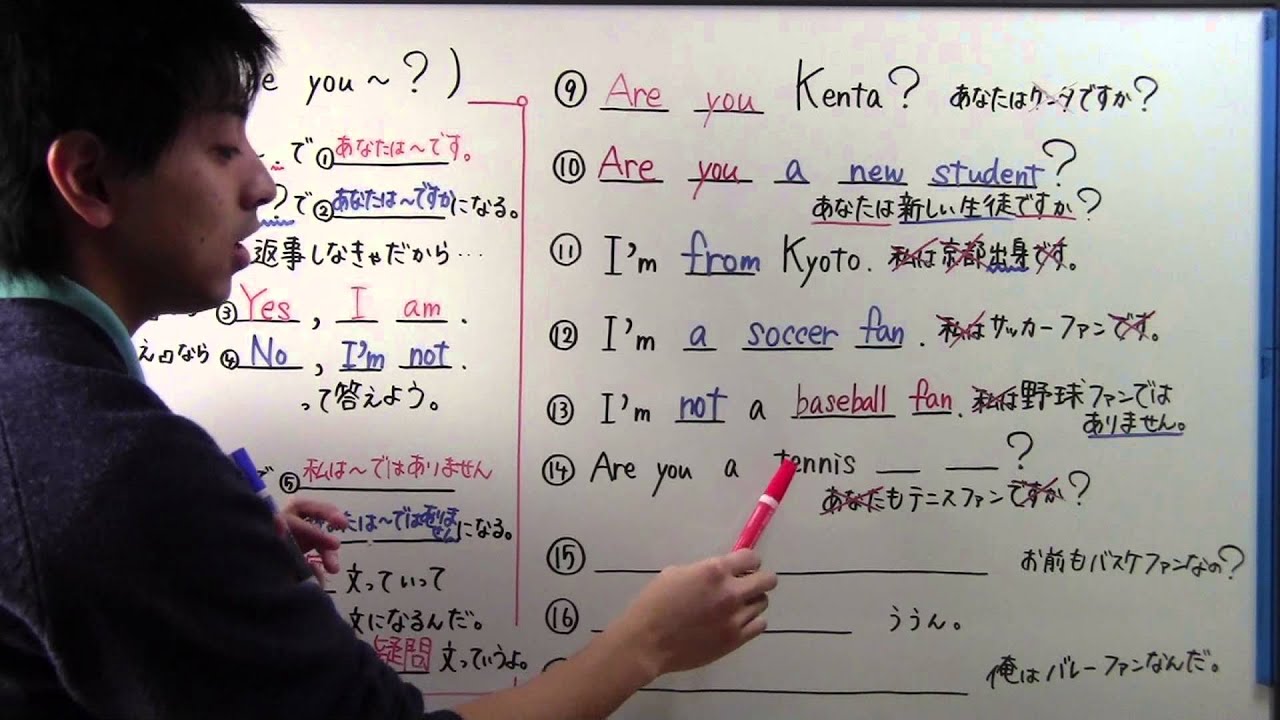 you ~ ? )
で ① あなたは~です。
? で ② あなたは~ですか になる。
返事しなきゃだから…
③ Yes , I am .
なら ④ No , I'm not .
って答えよう。
で ⑤ 私は~ではありません
は~ではありません になる。
文っていって
文になるんだ。
疑問 文っていうよ。
⑨ Are you Kenta? あなたはケンタですか?
⑩ Are you a new student?
あなたは新しい生徒ですか?
⑪ I'm from Kyoto. 私は京都出身です。
⑫ I'm a soccer fan. 私はサッカーファンです。
⑬ I'm not a baseball fan. 私は野球ファンでは
ありません。
⑭ Are you a tennis __ __?
あなたもテニスファンですか?
⑮ ______ お前もバスケファンなの?
⑯ ______ ううん。
______ 俺はバレーファンなんだ。